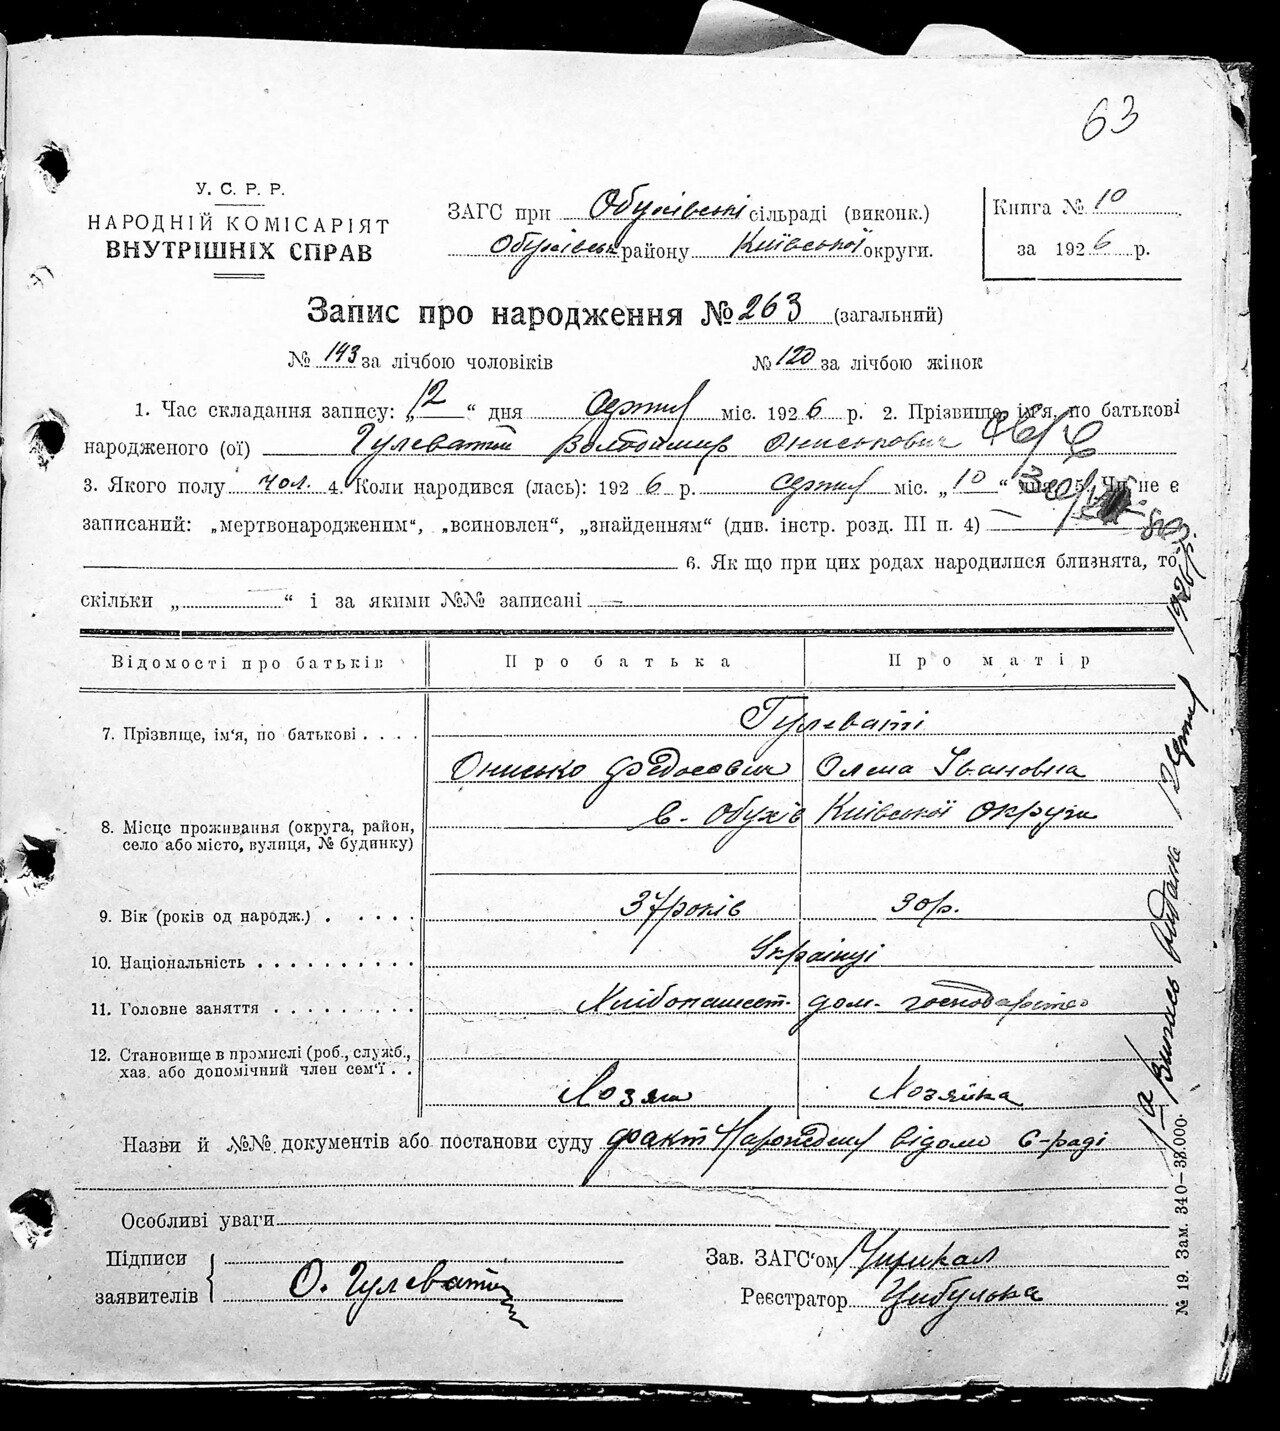 63
У. С. Р. Р.
НАРОДНІЙ КОМІСАРІЯТ
ВНУТРІШНІХ СПРАВ
ЗАГС при Обухівські сільраді (виконк.)
Обухівськ району Київської округи.
Книга № 10
за 1926 р.
Запис про народження № 263 (загальний)
№ 143 за лічбою чоловіків № 120 за лічбою жінок
1. Час складання запису: „12“ дня серпня міс. 1926 р. 2. Прізвище, ім'я, по батькові
народженого (ої) Гулеватий ВолодимирОниськович
3. Якого полу чол. 4. Коли народився (лась): 1926 р. серпня міс. „10“ дня 5. Чи не є
записаний: „мертвонародженим“, „всиновлен“, „знайденням“ (див. інстр. розд. III п. 4)
6. Як що при цих родах народилися близнята, то
скільки „ “ і за якими №№ записані
Відомості про батьків Про батька Про матір
7. Прізвище, ім'я, по батькові Гулеваті
Онисько Федосович Олена Івановна
8. Місце проживання (округа, район, село або місто, вулиця, № будинку) с. Обухів Київської округи
9. Вік (років од народж.) 37 років 30 р.
10. Національність Українці
11. Головне заняття Хлібопашест. дом. господарство
12. Становище в промислі (роб., служб., хаз. або допомічний член сем'ї Хозяин Хозяйка
Назви й №№ документів або постанови суду факт народження відомо с-раді
Особливі уваги
Підписи
заявителів О. Гулеватий
Зав. ЗАГС'ом
Реєстратор Цибулька
1а Випись видана 12 серпня 1926 р.
№ 19. Зам. 340—33.000.